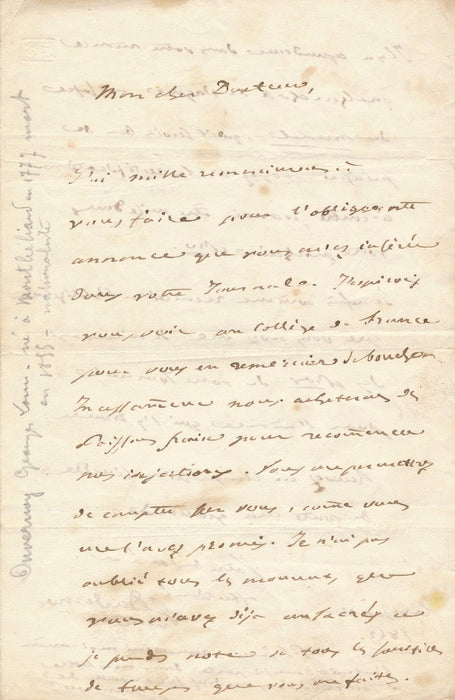 Mon cher Docteur,
J'ai mille remerciemens à
vous faire pour l'obligeante
annonce que vous avez insérée
dans votre Journal. J'espérois
vous voir au collège de France
pour vous en remercier de bouche.
Incessament nous acheterons des
Poissons frais pour recommencer
nos injections. Vous me permettrez
de compter sur vous, comme vous
me l'avez promis. Je n'ai pas
oublié tous les momens que
vous m'avez déja consacrés et
je prends note de tous les sacrifices
de temps que vous me faites.
Duvernoy Georges Louis - né à Montbeliard en 1777 mort
en 1855 - naturaliste